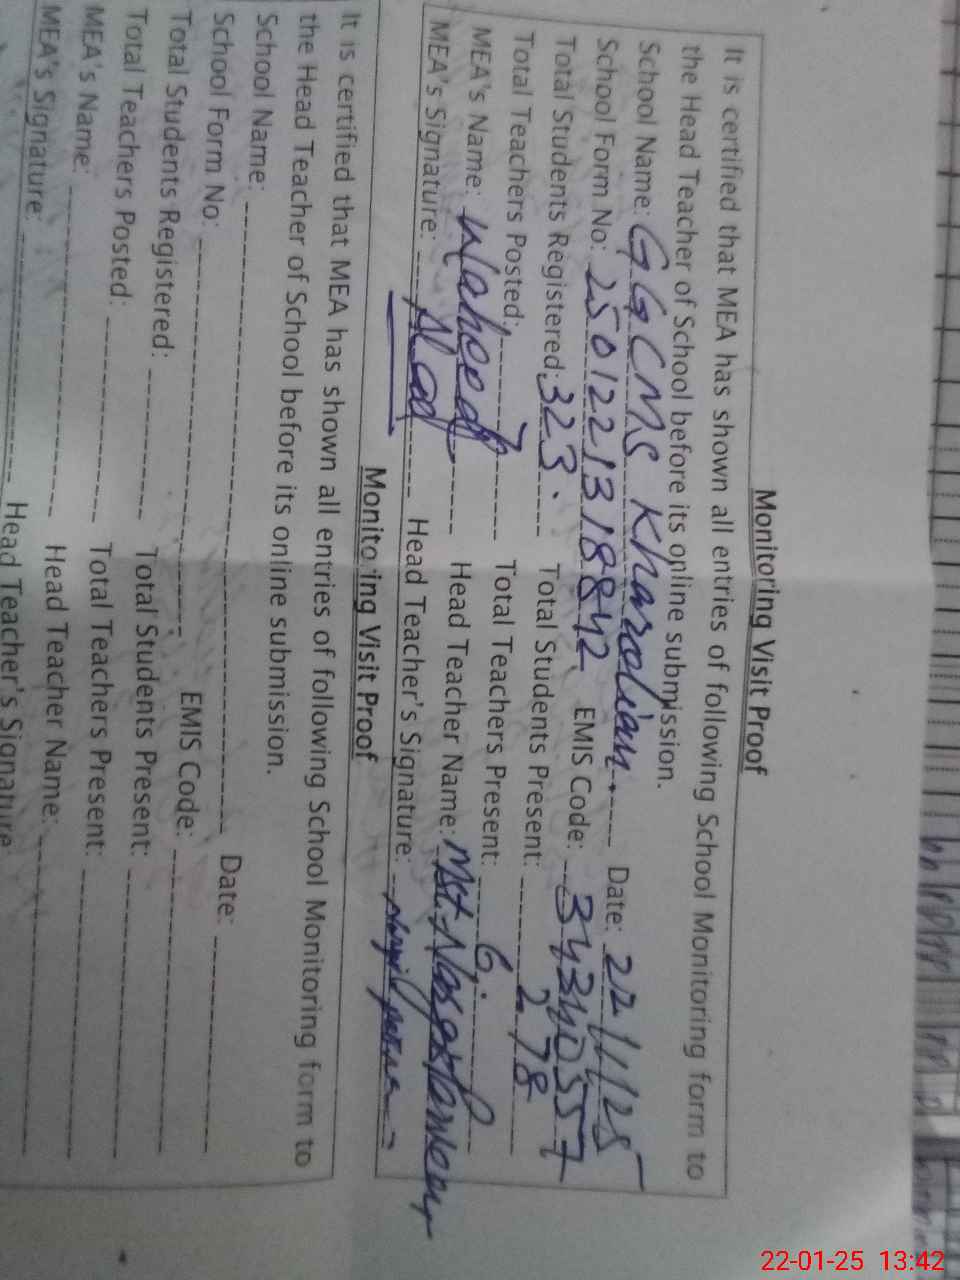 Monitoring Visit Proof
It is certified that MEA has shown all entries of following School Monitoring form to
the Head Teacher of School before its online submission.
School Name: GGCMS Kharolian Date: 22/1/25
School Form No: 2501221318842 EMIS Code: 34340557
Total Students Registered: 323. Total Students Present: 278
Total Teachers Posted: 7 Total Teachers Present: 6
MEA's Name: Waheed Head Teacher Name: Mst.
MEA's Signature: Head Teacher's Signature:
Monitoing Visit Proof
It is certified that MEA has shown all entries of following School Monitoring form to
the Head Teacher of School before its online submission.
School Name: Date:
School Form No: EMIS Code:
Total Students Registered: Total Students Present:
Total Teachers Posted: Total Teachers Present:
MEA's Name: Head Teacher Name:
MEA's Signature: Head Teacher's Signature
22-01-25 13:42